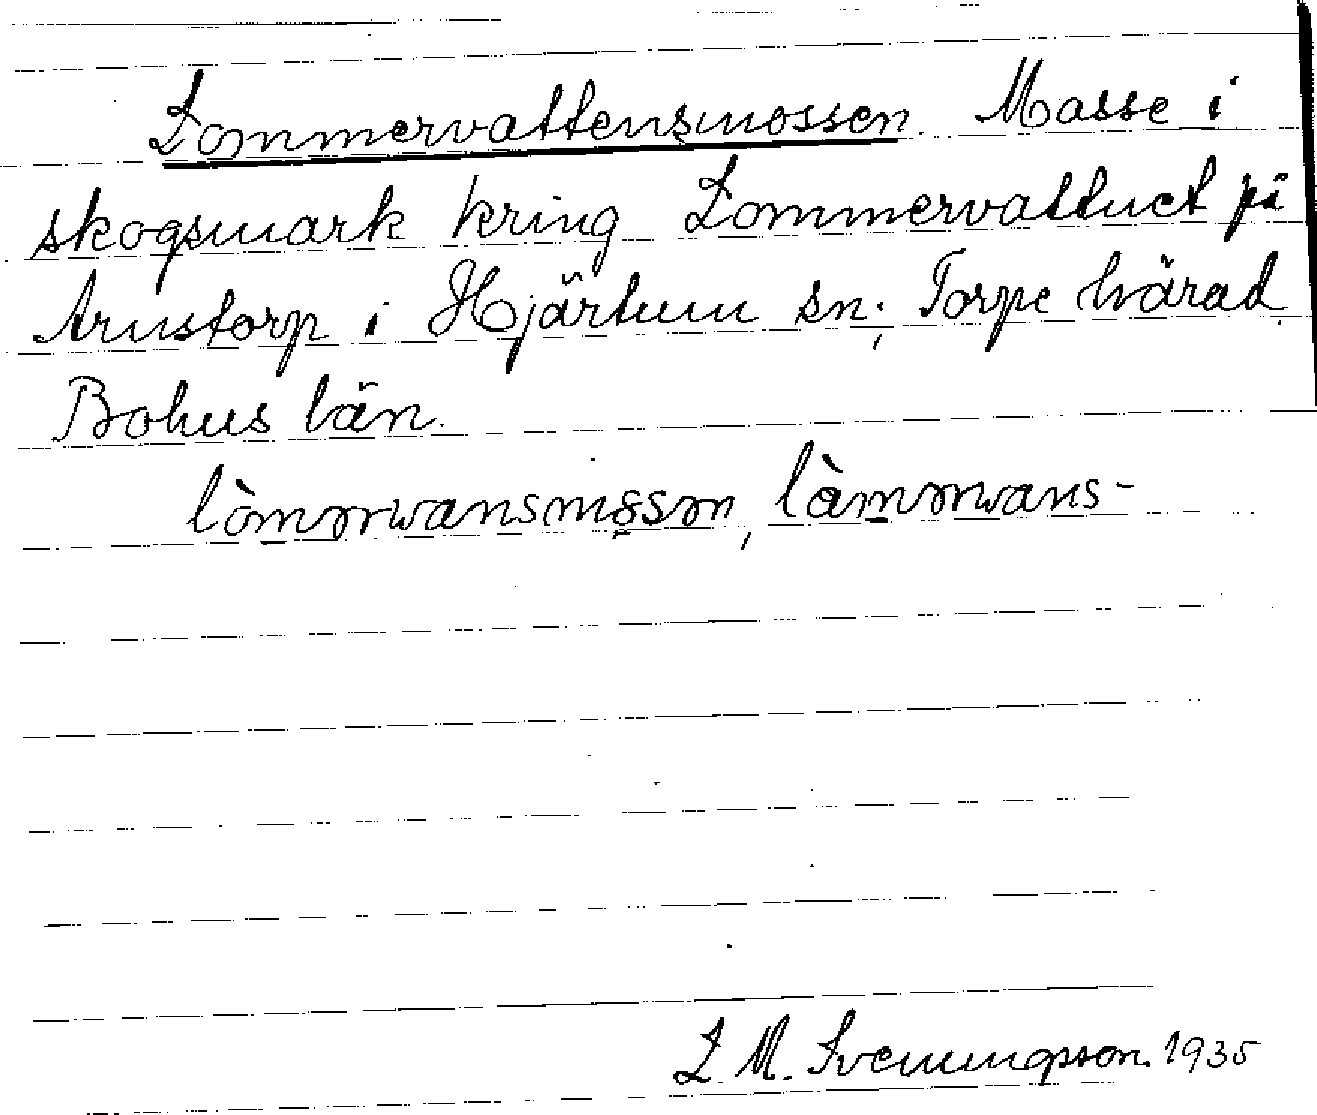 Lommervattensmossen Mosse i
skogsmark kring Lommervattnet på
Arnstorp i Hjärtum sn; Torpe härad
Bohus län.
lòmmrwansmssm, làmmrwans-
L. M. Svenungsson. 1935